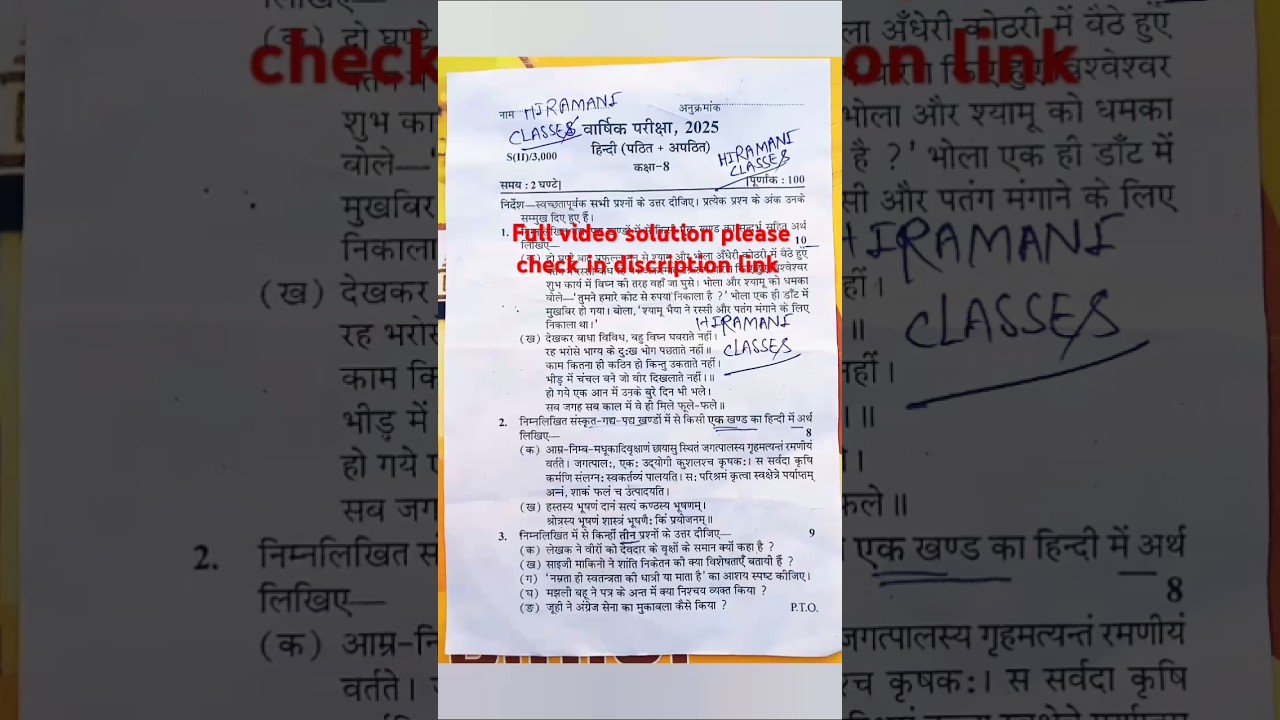 नाम HIRAMANI CLASSES अनुक्रमांक
वार्षिक परीक्षा, 2025
हिन्दी (पठित + अपठित)
S(II)/3,000
कक्षा-8
HIRAMANI
CLASSES
समय : 2 घण्टे]
[पूर्णांक : 100
निर्देश—स्वच्छतापूर्वक सभी प्रश्नों के उत्तर दीजिए। प्रत्येक प्रश्न के अंक उनके
सम्मुख दिए हुए हैं।
Full video solution please
check in discription link
1.
लिखिए—
10
(क) दो घण्टे बाद प्रफुल्ल मन से श्यामू और भोला अँधेरी कोठरी में बैठे हुए
शुभ कार्य में विघ्न की तरह वहाँ जा घुसे। भोला और श्यामू को धमका
बोले—'तुमने हमारे कोट से रुपया निकाला है ?' भोला एक ही डाँट में
मुखबिर हो गया। बोला, 'श्यामू भैया ने रस्सी और पतंग मंगाने के लिए
निकाला था।'
HIRAMANI
CLASSES
(ख) देखकर बाधा विविध, बहु विघ्न घबराते नहीं।
रह भरोसे भाग्य के दुःख भोग पछताते नहीं॥
काम कितना ही कठिन हो किन्तु उकताते नहीं।
भीड़ में चंचल बने जो वीर दिखलाते नहीं।॥
हो गये एक आन में उनके बुरे दिन भी भले।
सब जगह सब काल में वे ही मिले फूले-फले॥
2. निम्नलिखित संस्कृत-गद्य-पद्य खण्डों में से किसी एक खण्ड का हिन्दी में अर्थ
लिखिए—
8
(क) आम्र-निम्ब-मधूकादिवृक्षाणं छायासु स्थितं जगत्पालस्य गृहमत्यन्तं रमणीयं
वर्तते। जगत्पाल:, एक: उद्योगी कुशलश्च कृषक:। स सर्वदा कृषि
कर्मणि संलग्न: स्वकर्तव्यं पालयति। स: परिश्रमं कृत्वा स्वक्षेत्रे पर्याप्तम्
अन्नं, शाकं फलं च उत्पादयति।
(ख) हस्तस्य भूषणं दानं सत्यं कण्ठस्य भूषणम्।
श्रोत्रस्य भूषणं शास्त्रं भूषणै: किं प्रयोजनम्॥
3. निम्नलिखित में से किन्हीं तीन प्रश्नों के उत्तर दीजिए—
9
(क) लेखक ने वीरों को देवदार के वृक्षों के समान क्यों कहा है ?
(ख) साइजी माकिनो ने शांति निकेतन की क्या विशेषताएँ बतायी हैं ?
(ग) 'नम्रता ही स्वतन्त्रता की धात्री या माता है' का आशय स्पष्ट कीजिए।
(घ) मझली बहू ने पत्र के अन्त में क्या निश्चय व्यक्त किया ?
(ङ) जूही ने अंग्रेज सेना का मुकाबला कैसे किया ?
P.T.O.